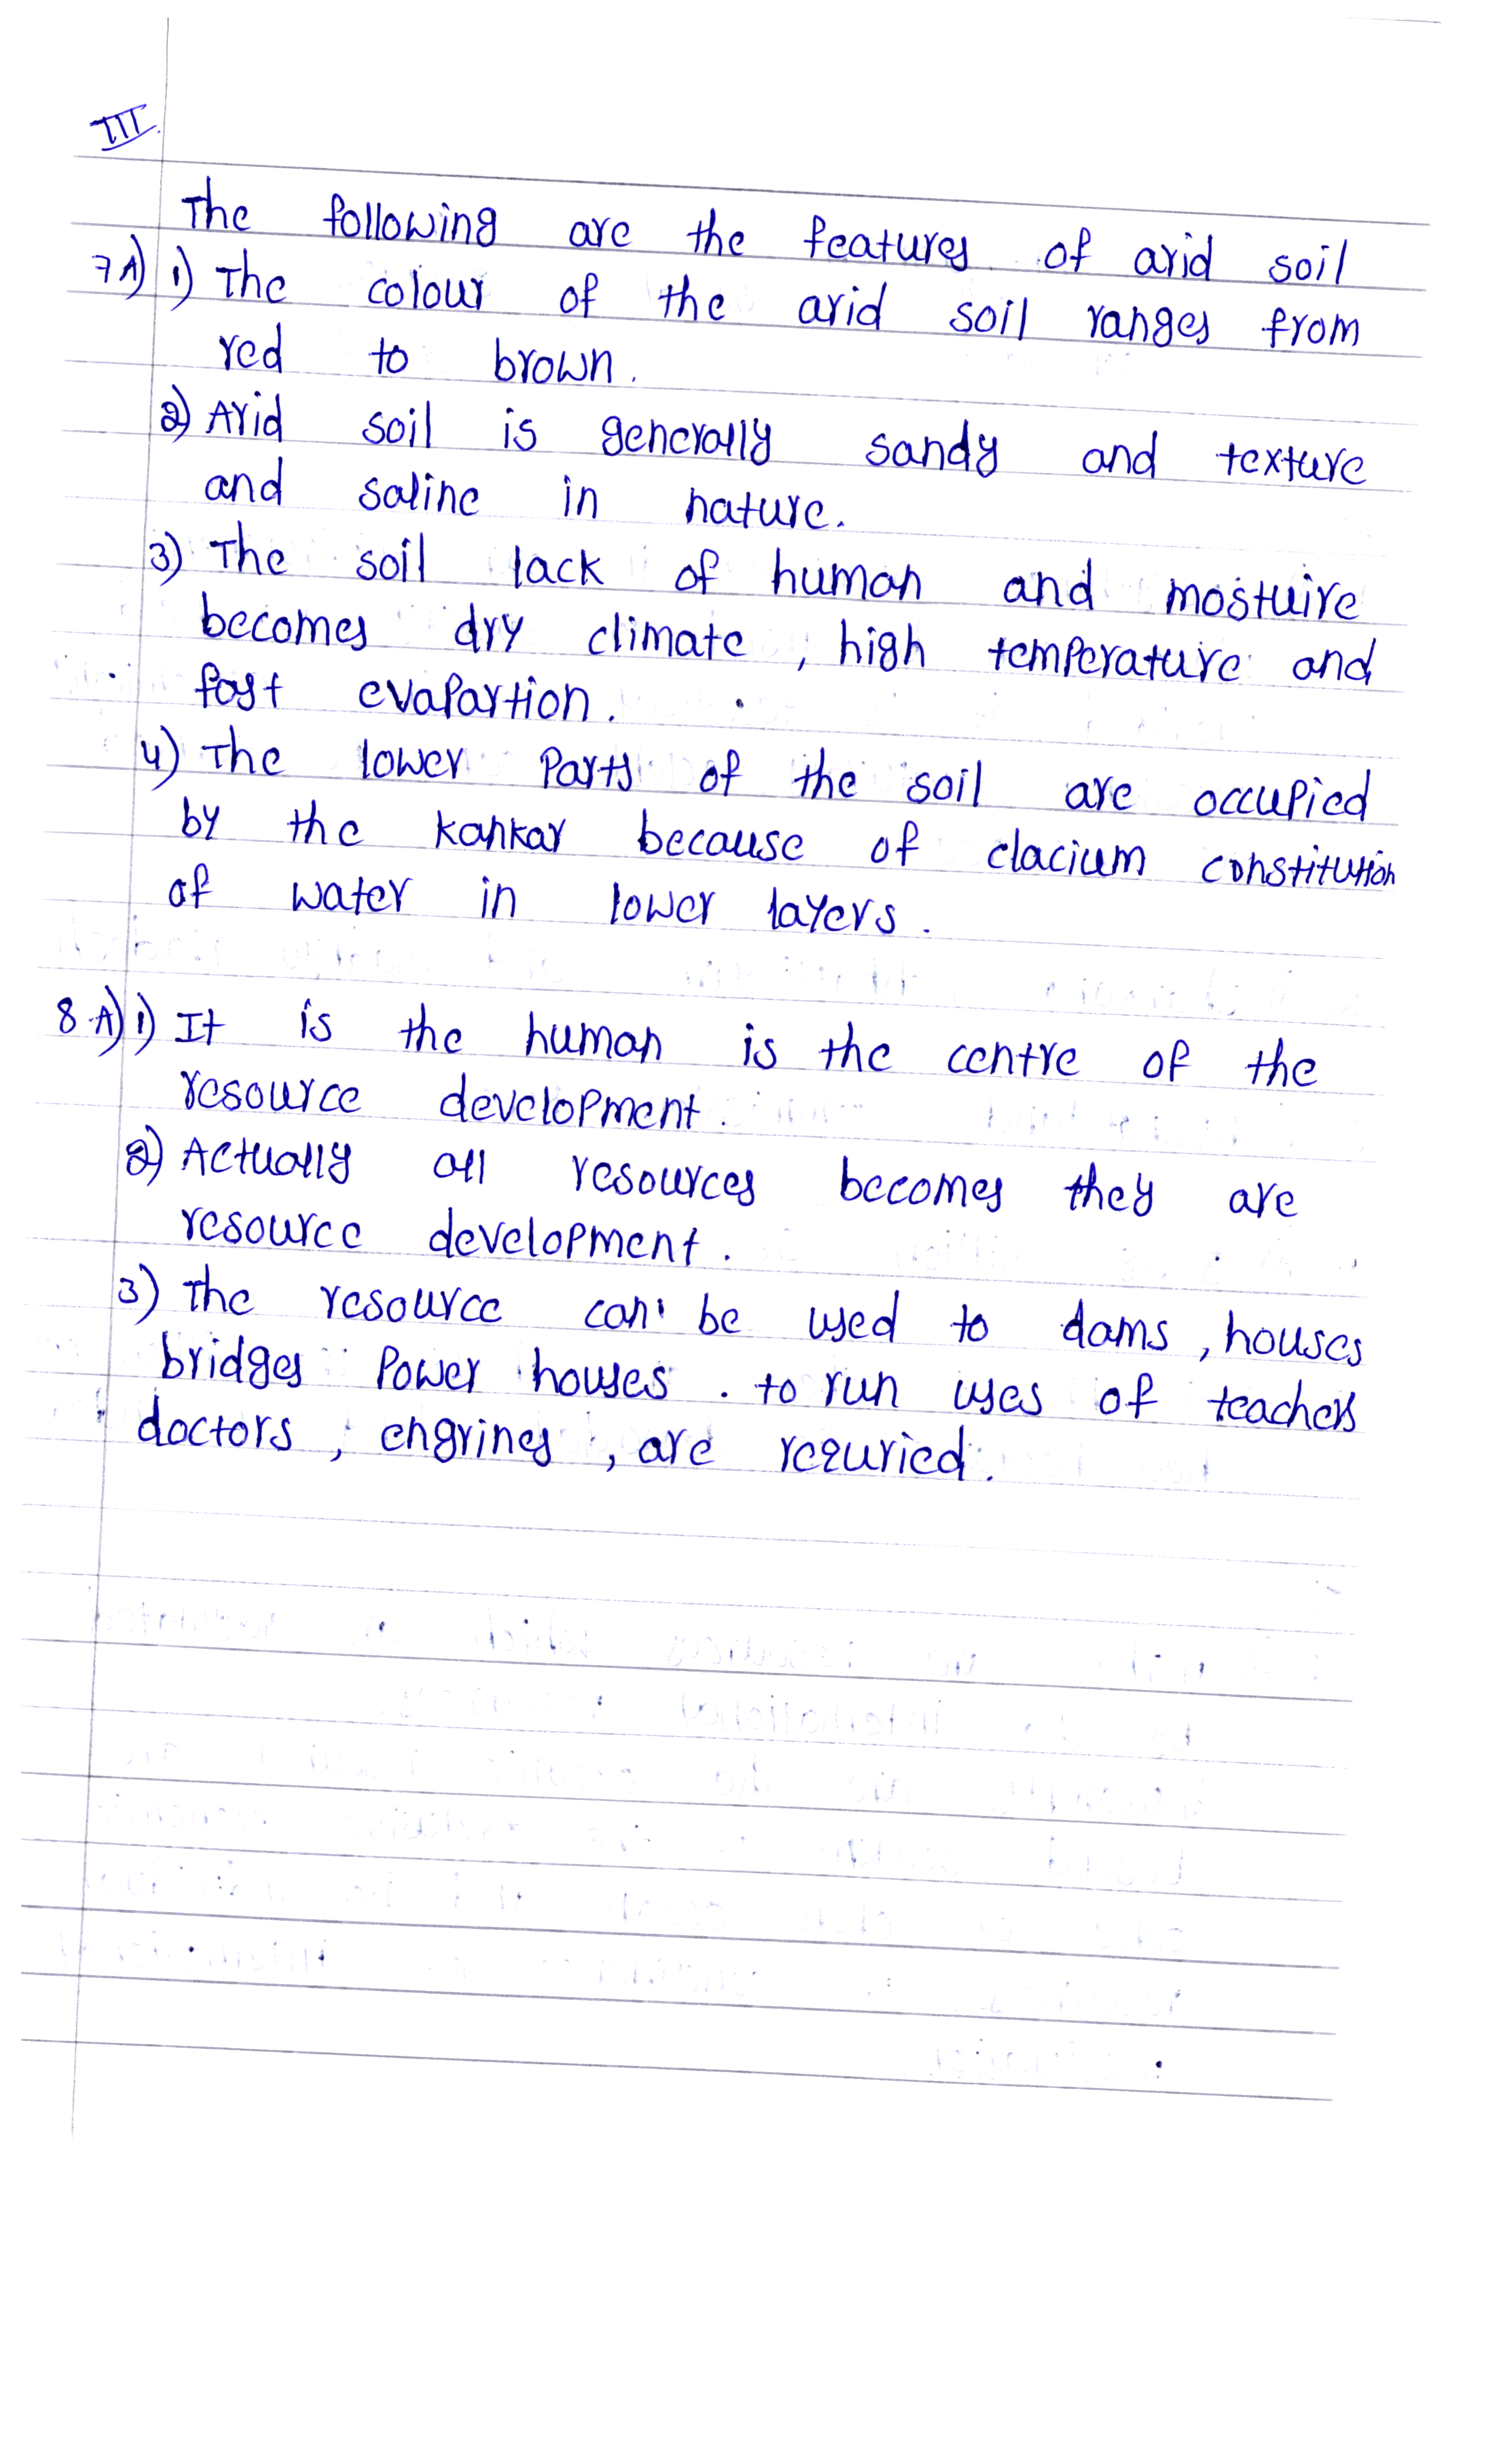 III.
The following are the features of arid soil
7A) 1) The colour of the arid soil ranges from
red to brown.
2) Arid soil is generally sandy and texture
and saline in nature.
3) The soil lack of human and mostuire
becomes dry climate, high temperature and
fast evapartion.
4) The lower parts of the soil are occupied
by the kankar because of clacium constitution
of water in lower layers.
8 A) 1) It is the human is the centre of the
resource development.
2) Actually all resources becomes they are
resource development.
3) The resource can be used to dams, houses
bridges Power houses. to run uses of teachers
doctors, engrines, are requried.